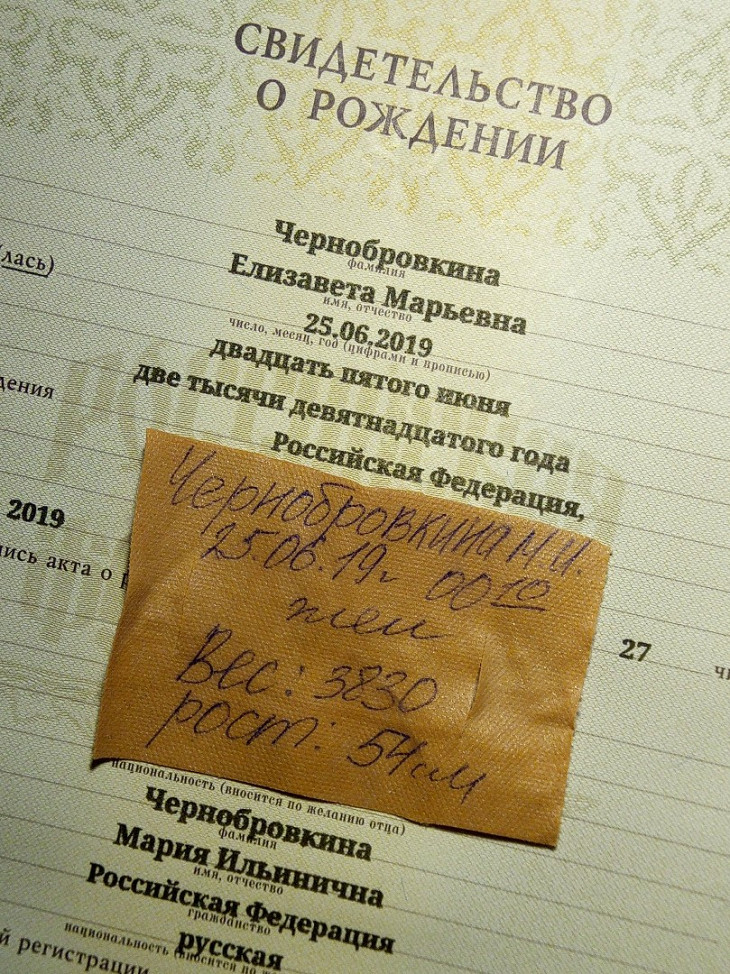 СВИДЕТЕЛЬСТВО
О РОЖДЕНИИ
Чернобровкина
фамилия
(лась)
Елизавета Марьевна
имя, отчество
25.06.2019
число, месяц, год (цифрами и прописью)
двадцать пятого июня
дения
две тысячи девятнадцатого года
Российская Федерация,
2019
Чернобровкина М.И.
25.06.19г 00 10
жен
Вес: 3830
рост: 54см
пись акта о р
27
чи
национальность (вносится по желанию отца)
Чернобровкина
фамилия
Мария Ильинична
имя, отчество
Российская Федерация
гражданство
русская
национальность (вносится по же
й регистрации